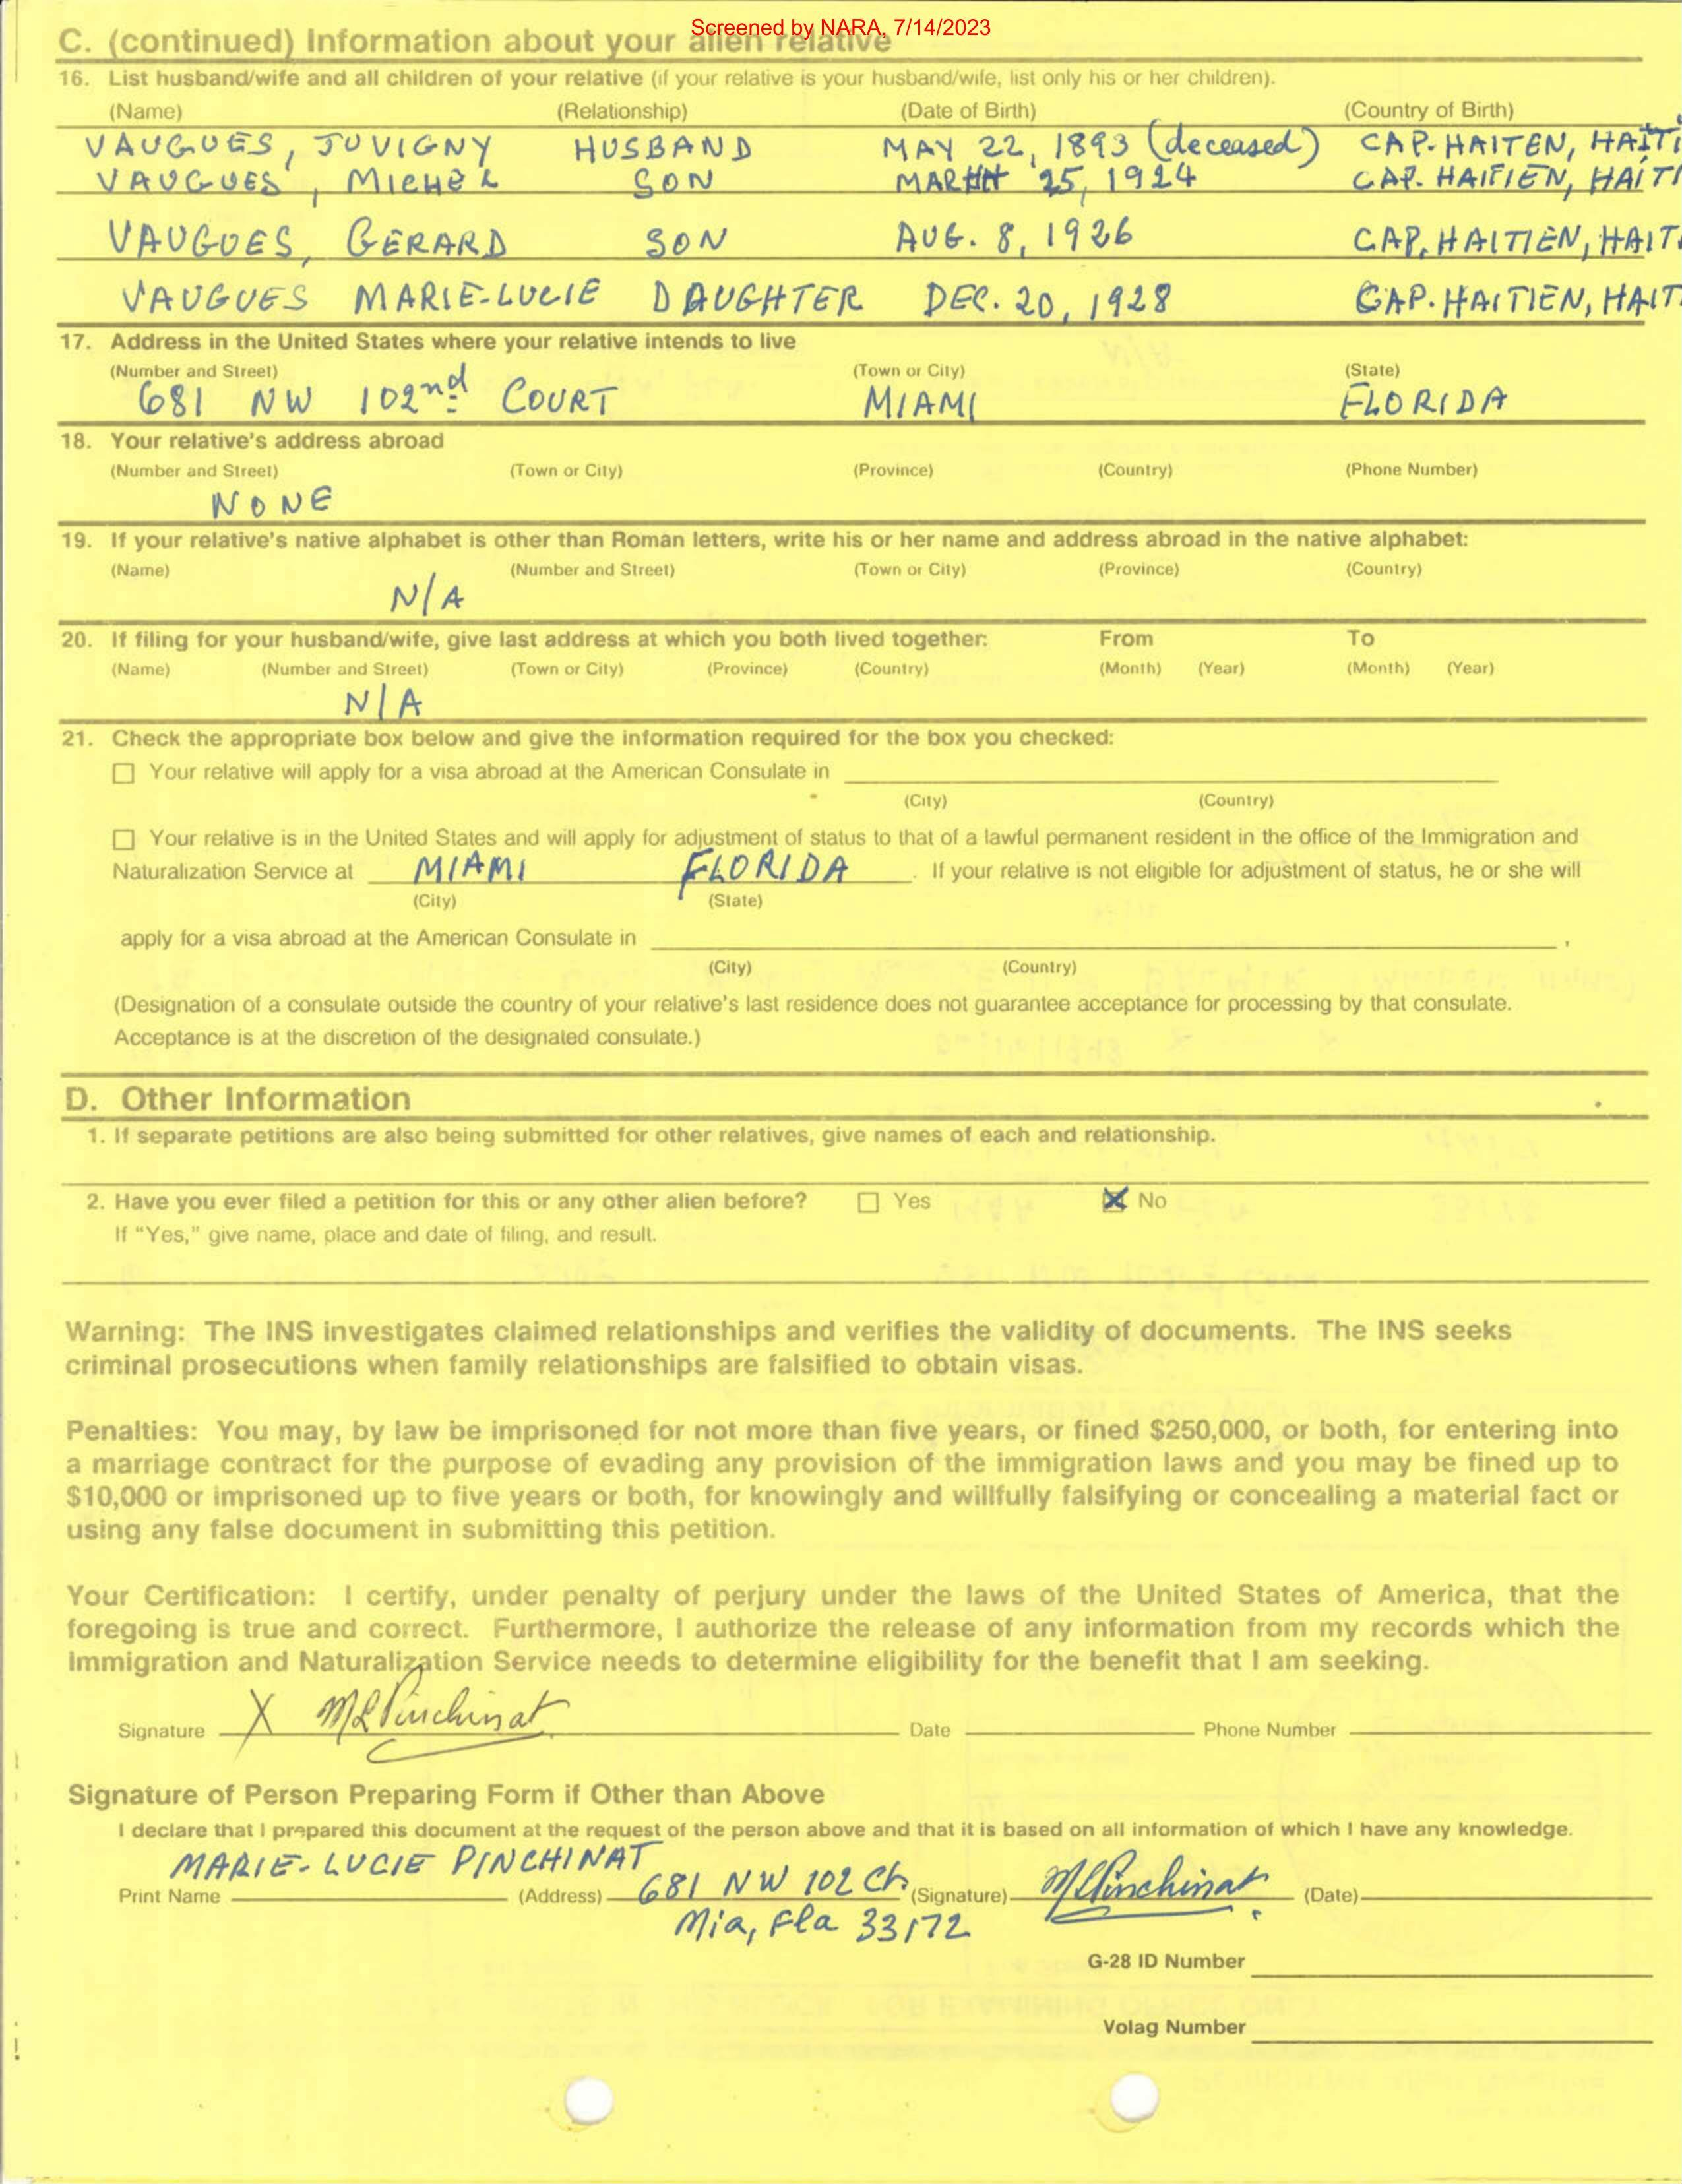 Screened by NARA, 7/14/2023
C. (continued) Information about your alien relative
16. List husband/wife and all children of your relative (if your relative is your husband/wife, list only his or her children).
(Name) (Relationship) (Date of Birth) (Country of Birth)
VAUGUES, JUVIGNY HUSBAND MAY 22, 1893 (deceased) CAP-HAITEN, HAITI
VAUGUES, MICHEL SON 25, 1924 CAP. HAITIEN, HAITI
VAUGUES, GERARD SON AUG. 8, 1926 CAP. HAITIEN, HAIT
VAUGUES MARIE-LUCIE DAUGHTER DEC. 20, 1928 CAP. HAITIEN, HAIT
17. Address in the United States where your relative intends to live
(Number and Street) (Town or City) (State)
681 NW 102nd COURT MIAMI FLORIDA
18. Your relative's address abroad
(Number and Street) (Town or City) (Province) (Country) (Phone Number)
NONE
19. If your relative's native alphabet is other than Roman letters, write his or her name and address abroad in the native alphabet:
(Name) (Number and Street) (Town or City) (Province) (Country)
N/A
20. If filing for your husband/wife, give last address at which you both lived together: From To
(Name) (Number and Street) (Town or City) (Province) (Country) (Month) (Year) (Month) (Year)
N/A
21. Check the appropriate box below and give the information required for the box you checked:
Your relative will apply for a visa abroad at the American Consulate in
(City) (Country)
Your relative is in the United States and will apply for adjustment of status to that of a lawful permanent resident in the office of the Immigration and
Naturalization Service at MIAMI FLORIDA. If your relative is not eligible for adjustment of status, he or she will
(City) (State)
apply for a visa abroad at the American Consulate in
(City) (Country)
(Designation of a consulate outside the country of your relative's last residence does not guarantee acceptance for processing by that consulate.
Acceptance is at the discretion of the designated consulate.)
D. Other Information
1. If separate petitions are also being submitted for other relatives, give names of each and relationship.
2. Have you ever filed a petition for this or any other alien before? Yes X No
If "Yes," give name, place and date of filing, and result.
Warning: The INS investigates claimed relationships and verifies the validity of documents. The INS seeks
criminal prosecutions when family relationships are falsified to obtain visas.
Penalties: You may, by law be imprisoned for not more than five years, or fined $250,000, or both, for entering into
a marriage contract for the purpose of evading any provision of the immigration laws and you may be fined up to
$10,000 or imprisoned up to five years or both, for knowingly and willfully falsifying or concealing a material fact or
using any false document in submitting this petition.
Your Certification: I certify, under penalty of perjury under the laws of the United States of America, that the
foregoing is true and correct. Furthermore, I authorize the release of any information from my records which the
Immigration and Naturalization Service needs to determine eligibility for the benefit that I am seeking.
Signature X MLPinchinat Date Phone Number
Signature of Person Preparing Form if Other than Above
I declare that I prepared this document at the request of the person above and that it is based on all information of which I have any knowledge.
MARIE-LUCIE PINCHINAT
Print Name (Address) 681 NW 102 Ct. (Signature) MLPinchinat (Date)
Mia, Fla 33172
G-28 ID Number
Volag Number